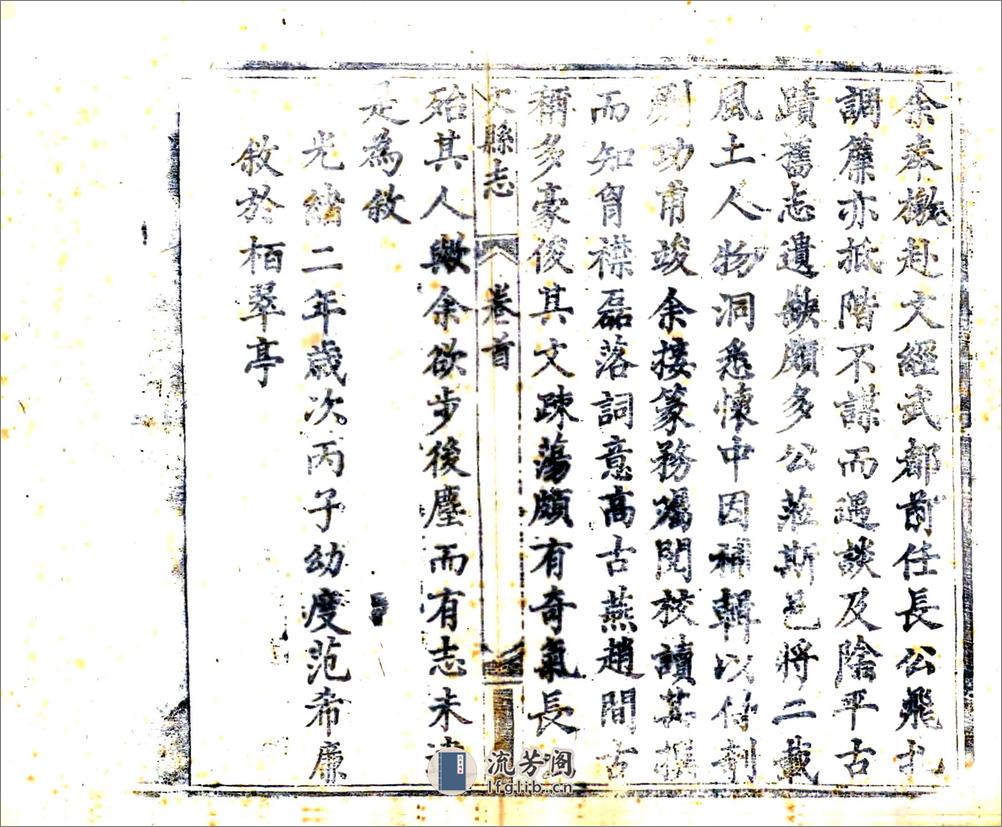 余奉檄赴文經武都前任長公飛札
調簾亦抵階不謀而遇談及陰平古
蹟舊志遺缺頗多公蒞斯邑將二載
風土人物洞悉懷中因補輯以付剞
劂功甫竣余接篆務囑閱校讀其撰
而知胷襟磊落詞意高古燕趙間古
稱多豪俊其文疎蕩頗有奇氣長
文縣志 卷首
殆其人歟余欲步後塵而有志未
是為敘
光緒二年歲次丙子幼度范希廉
敘於栢翠亭
流芳阁
lfglib.cn